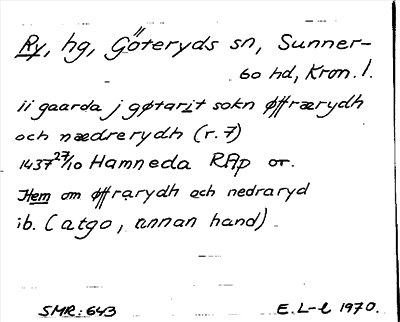 Ry, hg, Göteryds sn, Sunner-
bo hd, Kron. l.
ii gaarda j gøtarit sokn øffrærydh
och nædrerydh (r. 7)
1437 27/10 Hamneda RAp or.
Item om øffrarydh och nedraryd
ib. (atgo, annan hand)
SMR: 643 E. L-l 1970.